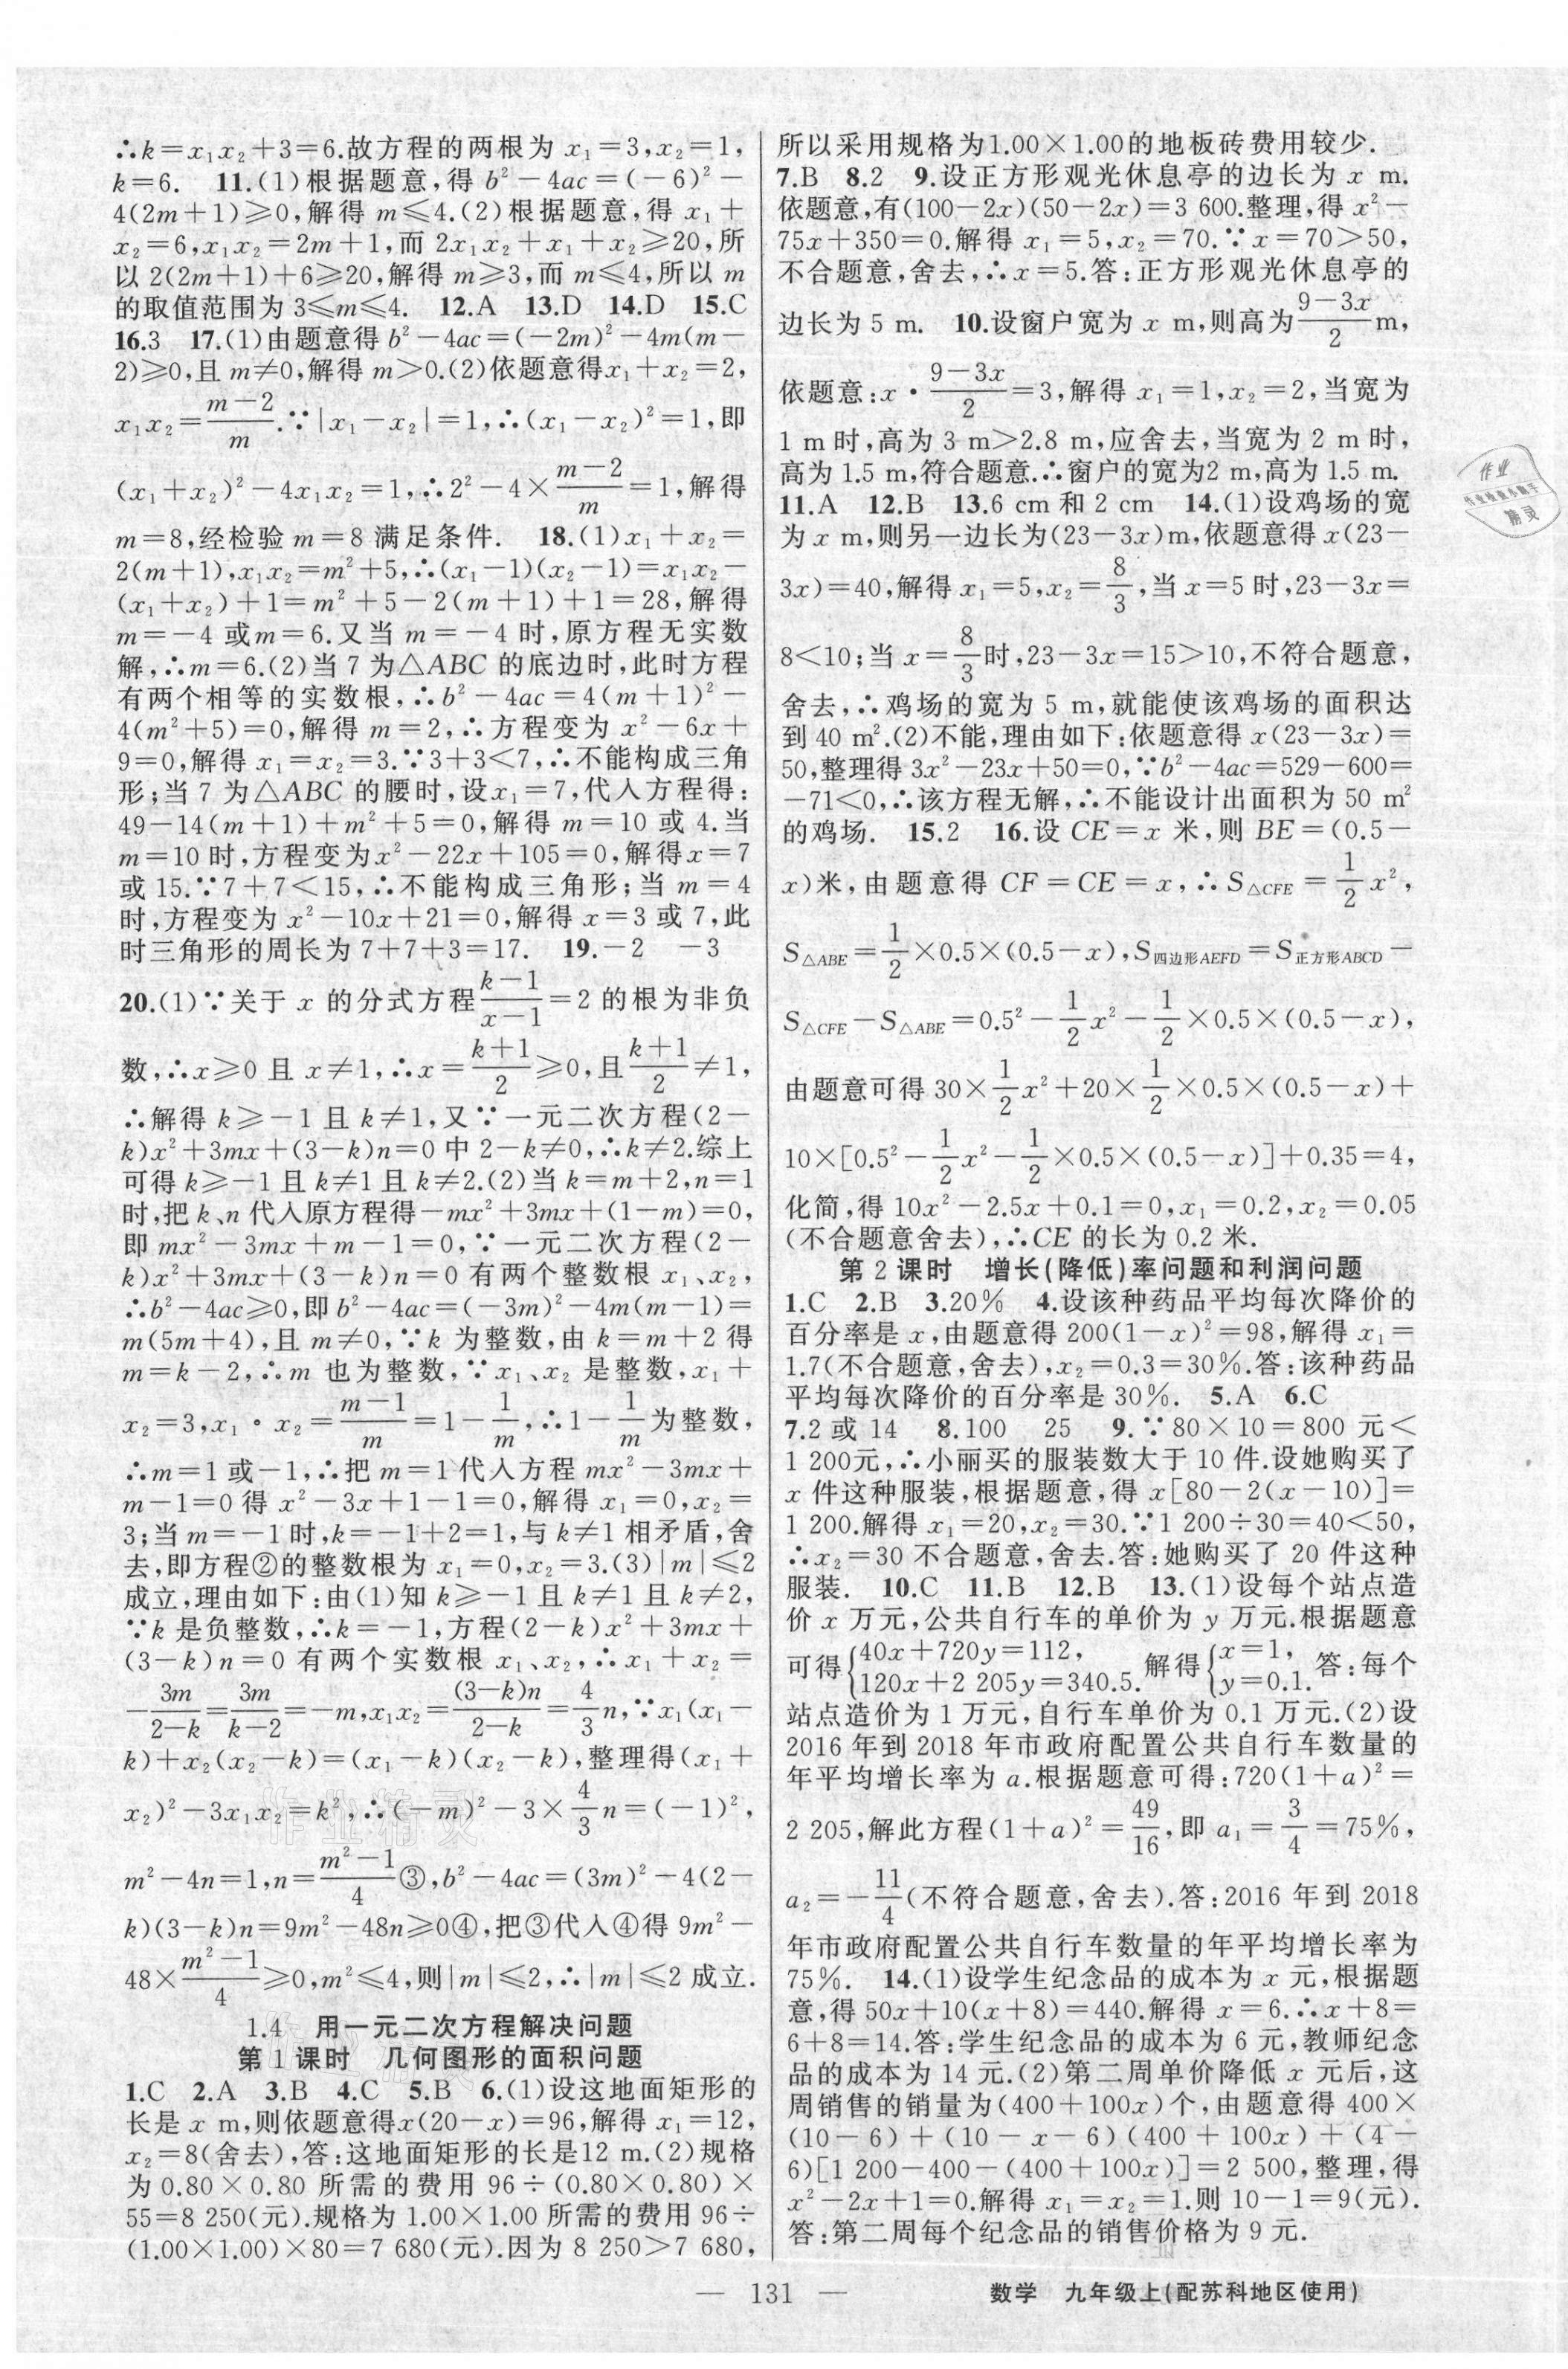 ∴k=x₁x₂+3=6.故方程的两根为 x₁=3,x₂=1,
k=6. 11.(1)根据题意,得 b²-4ac=(-6)²-
4(2m+1)≥0,解得 m≤4.(2)根据题意,得 x₁+
x₂=6,x₁x₂=2m+1,而 2x₁x₂+x₁+x₂≥20,所
以 2(2m+1)+6≥20,解得 m≥3,而 m≤4,所以 m
的取值范围为 3≤m≤4. 12.A 13.D 14.D 15.C
16.3 17.(1)由题意得 b²-4ac=(-2m)²-4m(m-
2)≥0,且 m≠0,解得 m>0.(2)依题意得x₁+x₂=2,
x₁x₂=\frac{m-2}{m}.∵|x₁-x₂|=1,∴(x₁-x₂)²=1,即
(x₁+x₂)²-4x₁x₂=1,∴2²-4×\frac{m-2}{m}=1,解得
m=8,经检验 m=8 满足条件. 18.(1)x₁+x₂=
2(m+1),x₁x₂=m²+5,∴(x₁-1)(x₂-1)=x₁x₂-
(x₁+x₂)+1=m²+5-2(m+1)+1=28,解得
m=-4 或m=6.又当 m=-4 时,原方程无实数
解,∴m=6.(2)当 7 为△ABC 的底边时,此时方程
有两个相等的实数根,∴b²-4ac=4(m+1)²-
4(m²+5)=0,解得 m=2,∴方程变为 x²-6x+
9=0,解得 x₁=x₂=3.∵3+3<7,∴不能构成三角
形;当 7 为△ABC 的腰时,设x₁=7,代入方程得:
49-14(m+1)+m²+5=0,解得 m=10 或 4.当
m=10 时,方程变为x²-22x+105=0,解得x=7
或 15.∵7+7<15,∴不能构成三角形;当 m=4
时,方程变为 x²-10x+21=0,解得 x=3 或 7,此
时三角形的周长为 7+7+3=17. 19.-2 -3
20.(1)∵关于 x 的分式方程\frac{k-1}{x-1}=2 的根为非负
数,∴x≥0 且 x≠1,∴x=\frac{k+1}{2}≥0,且\frac{k+1}{2}≠1,
∴解得 k≥-1 且 k≠1,又∵一元二次方程(2-
k)x²+3mx+(3-k)n=0 中 2-k≠0,∴k≠2.综上
可得 k≥-1 且 k≠1 且 k≠2.(2)当 k=m+2,n=1
时,把 k、n 代入原方程得-mx²+3mx+(1-m)=0,
即 mx²-3mx+m-1=0,∵一元二次方程(2-
k)x²+3mx+(3-k)n=0 有两个整数根 x₁、x₂,
∴b²-4ac≥0,即 b²-4ac=(-3m)²-4m(m-1)=
m(5m+4),且 m≠0,∵k 为整数,由 k=m+2 得
m=k-2,∴m 也为整数,∵x₁、x₂ 是整数,x₁+
x₂=3,x₁·x₂=\frac{m-1}{m}=1-\frac{1}{m},∴1-\frac{1}{m}为整数,
∴m=1 或-1,∴把 m=1代入方程 mx²-3mx+
m-1=0 得 x²-3x+1-1=0,解得 x₁=0,x₂=
3;当 m=-1 时,k=-1+2=1,与 k≠1 相矛盾,舍
去,即方程②的整数根为 x₁=0,x₂=3.(3)|m|≤2
成立,理由如下:由(1)知 k≥-1 且 k≠1 且 k≠2,
∵k 是负整数,∴k=-1,方程(2-k)x²+3mx+
(3-k)n=0 有两个实数根 x₁、x₂,∴x₁+x₂=
-\frac{3m}{2-k}=\frac{3m}{k-2}=-m,x₁x₂=\frac{(3-k)n}{2-k}=\frac{4}{3}n,∵x₁(x₁-
k)+x₂(x₂-k)=(x₁-k)(x₂-k),整理得(x₁+
x₂)²-3x₁x₂=k²,∴(-m)²-3×\frac{4}{3}n=(-1)²,
m²-4n=1,n=\frac{m²-1}{4}③,b²-4ac=(3m)²-4(2-
k)(3-k)n=9m²-48n≥0④,把③代入④得 9m²-
48×\frac{m²-1}{4}≥0,m²≤4,则|m|≤2,∴|m|≤2 成立.
1.4 用一元二次方程解决问题
第 1 课时 几何图形的面积问题
1.C 2.A 3.B 4.C 5.B 6.(1)设这地面矩形的
长是 x m,则依题意得x(20-x)=96,解得 x₁=12,
x₂=8(舍去),答:这地面矩形的长是12 m.(2)规格
为 0.80×0.80 所需的费用 96÷(0.80×0.80)×
55=8 250(元).规格为 1.00×1.00 所需的费用 96÷
(1.00×1.00)×80=7 680(元).因为 8 250>7 680,
所以采用规格为1.00×1.00的地板砖费用较少.
7.B 8.2 9.设正方形观光休息亭的边长为 x m.
依题意,有(100-2x)(50-2x)=3 600.整理,得 x²-
75x+350=0.解得 x₁=5,x₂=70.∵x=70>50,
不合题意,舍去,∴x=5.答:正方形观光休息亭的
边长为 5 m. 10.设窗户宽为 x m,则高为\frac{9-3x}{2}m,
依题意:x·\frac{9-3x}{2}=3,解得 x₁=1,x₂=2,当宽为
1 m 时,高为 3 m>2.8 m,应舍去,当宽为 2 m 时,
高为 1.5 m,符合题意.∴窗户的宽为2 m,高为 1.5 m.
11.A 12.B 13.6 cm 和 2 cm 14.(1)设鸡场的宽
为 x m,则另一边长为(23-3x)m,依题意得 x(23-
3x)=40,解得 x₁=5,x₂=\frac{8}{3},当 x=5 时,23-3x=
8<10;当 x=\frac{8}{3}时,23-3x=15>10,不符合题意,
舍去,∴鸡场的宽为 5 m,就能使该鸡场的面积达
到 40 m².(2)不能,理由如下:依题意得 x(23-3x)=
50,整理得 3x²-23x+50=0,∵b²-4ac=529-600=
-71<0,∴该方程无解,∴不能设计出面积为 50 m²
的鸡场. 15.2 16.设 CE=x 米,则 BE=(0.5-
x)米,由题意得 CF=CE=x,∴S△CFE=\frac{1}{2}x²,
S△ABE=\frac{1}{2}×0.5×(0.5-x),S四边形AEFD=S正方形ABCD-
S△CFE-S△ABE=0.5²-\frac{1}{2}x²-\frac{1}{2}×0.5×(0.5-x),
由题意可得 30×\frac{1}{2}x²+20×\frac{1}{2}×0.5×(0.5-x)+
10×[0.5²-\frac{1}{2}x²-\frac{1}{2}×0.5×(0.5-x)]+0.35=4,
化简,得 10x²-2.5x+0.1=0,x₁=0.2,x₂=0.05
(不合题意舍去),∴CE 的长为 0.2 米.
第 2 课时 增长(降低)率问题和利润问题
1.C 2.B 3.20% 4.设该种药品平均每次降价的
百分率是 x,由题意得 200(1-x)²=98,解得 x₁=
1.7(不合题意,舍去),x₂=0.3=30%.答:该种药品
平均每次降价的百分率是 30%. 5.A 6.C
7.2 或 14 8.100 25 9.∵80×10=800 元<
1 200元,∴小丽买的服装数大于 10 件.设她购买了
x 件这种服装,根据题意,得 x[80-2(x-10)]=
1 200.解得 x₁=20,x₂=30.∵1 200÷30=40<50,
∴x₂=30 不合题意,舍去.答:她购买了 20 件这种
服装. 10.C 11.B 12.B 13.(1)设每个站点造
价 x 万元,公共自行车的单价为 y 万元.根据题意
可得{40x+720y=112, 120x+2 205y=340.5. 解得{x=1, y=0.1. 答:每个
站点造价为 1 万元,自行车单价为 0.1 万元.(2)设
2016 年到 2018 年市政府配置公共自行车数量的
年平均增长率为 a.根据题意可得:720(1+a)²=
2 205,解此方程(1+a)²=\frac{49}{16},即 a₁=\frac{3}{4}=75%,
a₂=-\frac{11}{4}(不符合题意,舍去).答:2016 年到 2018
年市政府配置公共自行车数量的年平均增长率为
75%. 14.(1)设学生纪念品的成本为 x 元,根据题
意,得 50x+10(x+8)=440.解得 x=6.∴x+8=
6+8=14.答:学生纪念品的成本为 6 元,教师纪念
品的成本为 14 元.(2)第二周单价降低 x 元后,这
周销售的销量为(400+100x)个,由题意得 400×
(10-6)+(10-x-6)(400+100x)+(4-
6)[1 200-400-(400+100x)]=2 500,整理,得
x²-2x+1=0.解得 x₁=x₂=1.则 10-1=9(元).
答:第二周每个纪念品的销售价格为 9 元.
— 131 —
数学 九年级上(配苏科地区使用)
作业
精灵
作业精灵